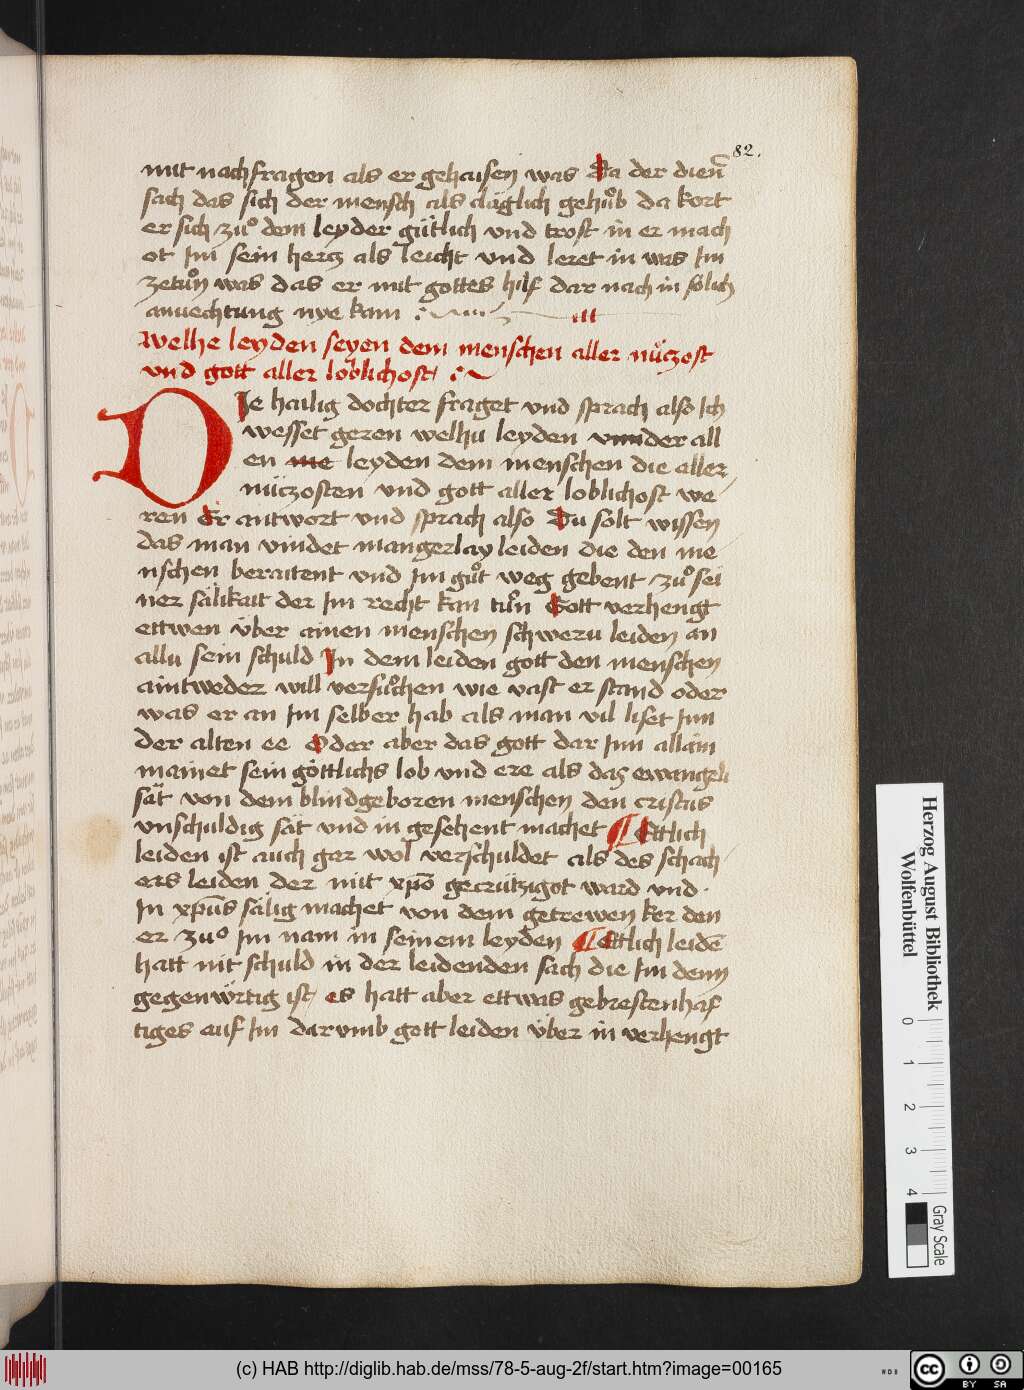 82.
mit nachfragen als er gehaisen was Da der dieñ
sach das sich der mensch als cläglich gehuͦb da kort
er sich zuͦ dem leyder gütlich vnd trost in er mach
ot Im sein hercz als leicht vnd leret in was Im
zetuͦn was das er mit gottes hilf dar nach in sölich
anuechtung nye kam
welhe leyden seyen dem menschen aller nüczost
vnd gott aller loblichost
DIe hailig dochter fraget vnd sprach also Ich
wesset geren welhu leyden vnnder all
en me leyden dem menschen die aller
nüczosten vnd gott aller loblichost we
ren Er antwort vnd sprach also Du solt wissen
das man vindet mangerlay leiden die den me
nschen beraitent vnd Im guͦt weg gebent zuͦ sei
ner sälikait der Im recht kan tuͦn Gott verhengt
ettwen über ainen menschen schweru leiden an
allu sein schuld In dem leiden gott den menschen
aintweder will versuͦchen wie vast er stand oder
was er an Im selber hab als man vil liset Inn
der alten ee Oder aber das gott dar Inn allain
mainet sein göttlichs lob vnd ere als daz ewangeli
sät von dem blindgeboren menschen den cristus
vnschuldig sät vnd in gesehent machet ¶ Ettlich
leiden ist auch gar wol verschuldet als des schach
ers leiden der mit xp̄o gecrützigot ward vnd
In xp̄us sälig machet von dem getrewen ker den
er zuͦ Im nam in seinem leyden ¶ Ettlich leidē
hatt nit schuld in der leidenden sach die Im denn
gegenwirtig ist es hatt aber ettwas gebrestenhaf
tiges auf Im darvmb gott leiden über in verhengt
Herzog August Bibliothek
Wolfenbüttel
0 1 2 3 4
Gray Scale
(c) HAB http://diglib.hab.de/mss/78-5-aug-2f/start.htm?image=00165
cc BY SA